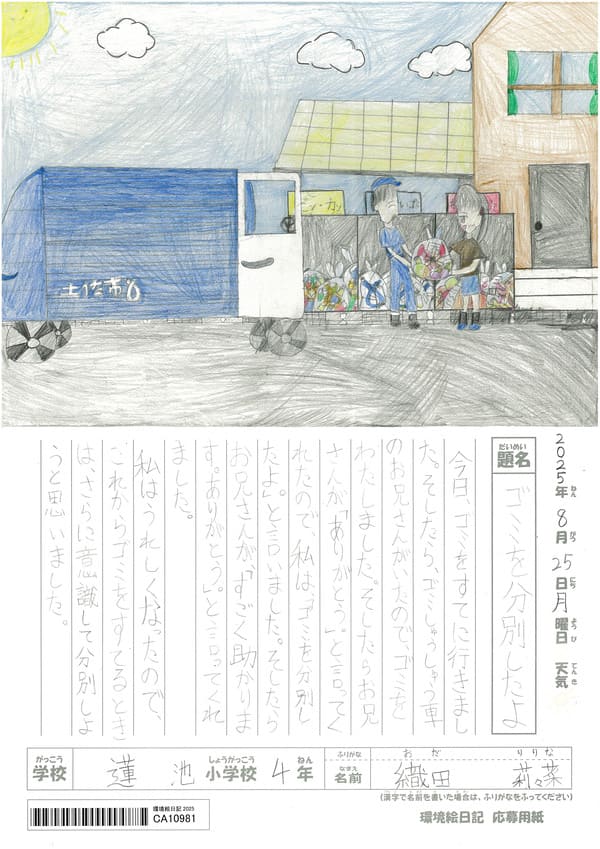 土佐市
2025年 8月 25日 月曜日 天気
ねん がつ にち ようび てんき
だいめい
題名 ゴミを分別したよ
今日、ゴミをすてに行きまし
た。そしたら、ゴミしゅうしゅう車
のお兄さんがいたので、ゴミを
わたしました。そしたらお兄
さんが「ありがとう」。と言ってく
れたので、私は、「ゴミを分別し
たよ」。と言いました。そしたら
お兄さんが、「すごく助かりま
す。ありがとう」。と言ってくれ
ました。
私はうれしくなったので、
これからゴミをすてるとき
は、さらに意識して分別しよ
うと思いました。
がっこう しょうがっこう ねん ふりがな おだ りりな
学校 蓮池 小学校 4年 なまえ 名前 織田 莉々菜
(漢字で名前を書いた場合は、ふりがなをふってください)
環境絵日記 2025
CA10981
環境絵日記 応募用紙